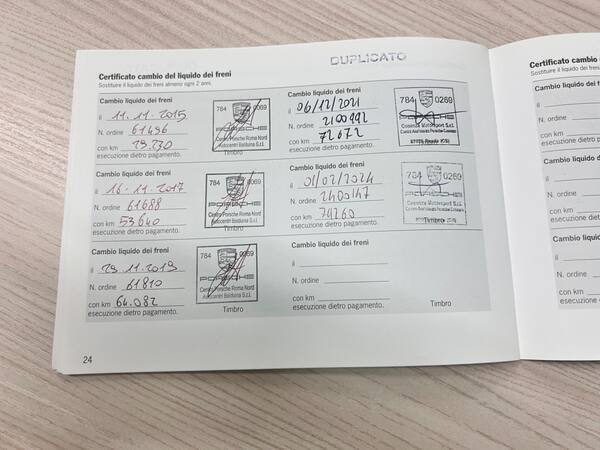 DUPLICATO
Certificato cambio del liquido dei freni
Sostituire il liquido dei freni almeno ogni 2 anni.
Cambio liquido dei freni
il 11.11.2015
N. ordine 61496
con km 29.730
esecuzione dietro pagamento.
784 0069
PORSCHE
Centro Porsche Roma Nord
Autocentri Balduina S.r.l.
Timbro
Cambio liquido dei freni
il 16.11.2017
N. ordine 61688
con km 53640
esecuzione dietro pagamento.
784 0069
Centro Porsche Roma Nord
Autocentri Balduina S.r.l.
Timbro
Cambio liquido dei freni
il 29.11.2019
N. ordine 61810
con km 64.082
esecuzione dietro pagamento.
784 0069
PORSCHE
Centro Porsche Roma Nord
Autocentri Balduina S.r.l.
Timbro
Cambio liquido dei freni
il 06/12/2021
N. ordine 2100992
con km 72672
esecuzione dietro pagamento.
784 0269
Cosenza Motorsport S.r.l.
Cambio liquido dei freni
il 01/02/2024
N. ordine 2400147
con km 74260
esecuzione dietro pagamento.
784 0269
Cosenza Motorsport S.r.l.
Timbro
Cambio liquido dei freni
il
N. ordine
con km
esecuzione dietro pagamento.
Timbro
24
Certificato cambio del
Sostituire il liquido dei freni
Cambio liquido dei freni
il
N. ordine
con km
esecuzione dietro pagam
Cambio liquido dei freni
il
N. ordine
con km
esecuzione dietro pagam
Cambio liquido dei freni
il
N. ordine
con km
esecuzione dietro paga